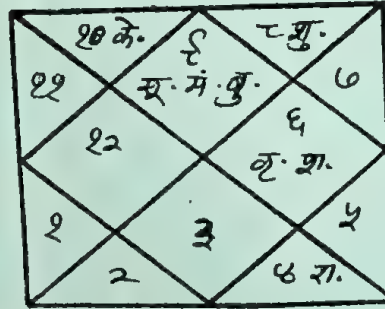 १० के. ९ ८ शु.
११ सू. मं. बु. ७
१२ ६
वृ. श.
१ ३ ५
२ ४ रा.